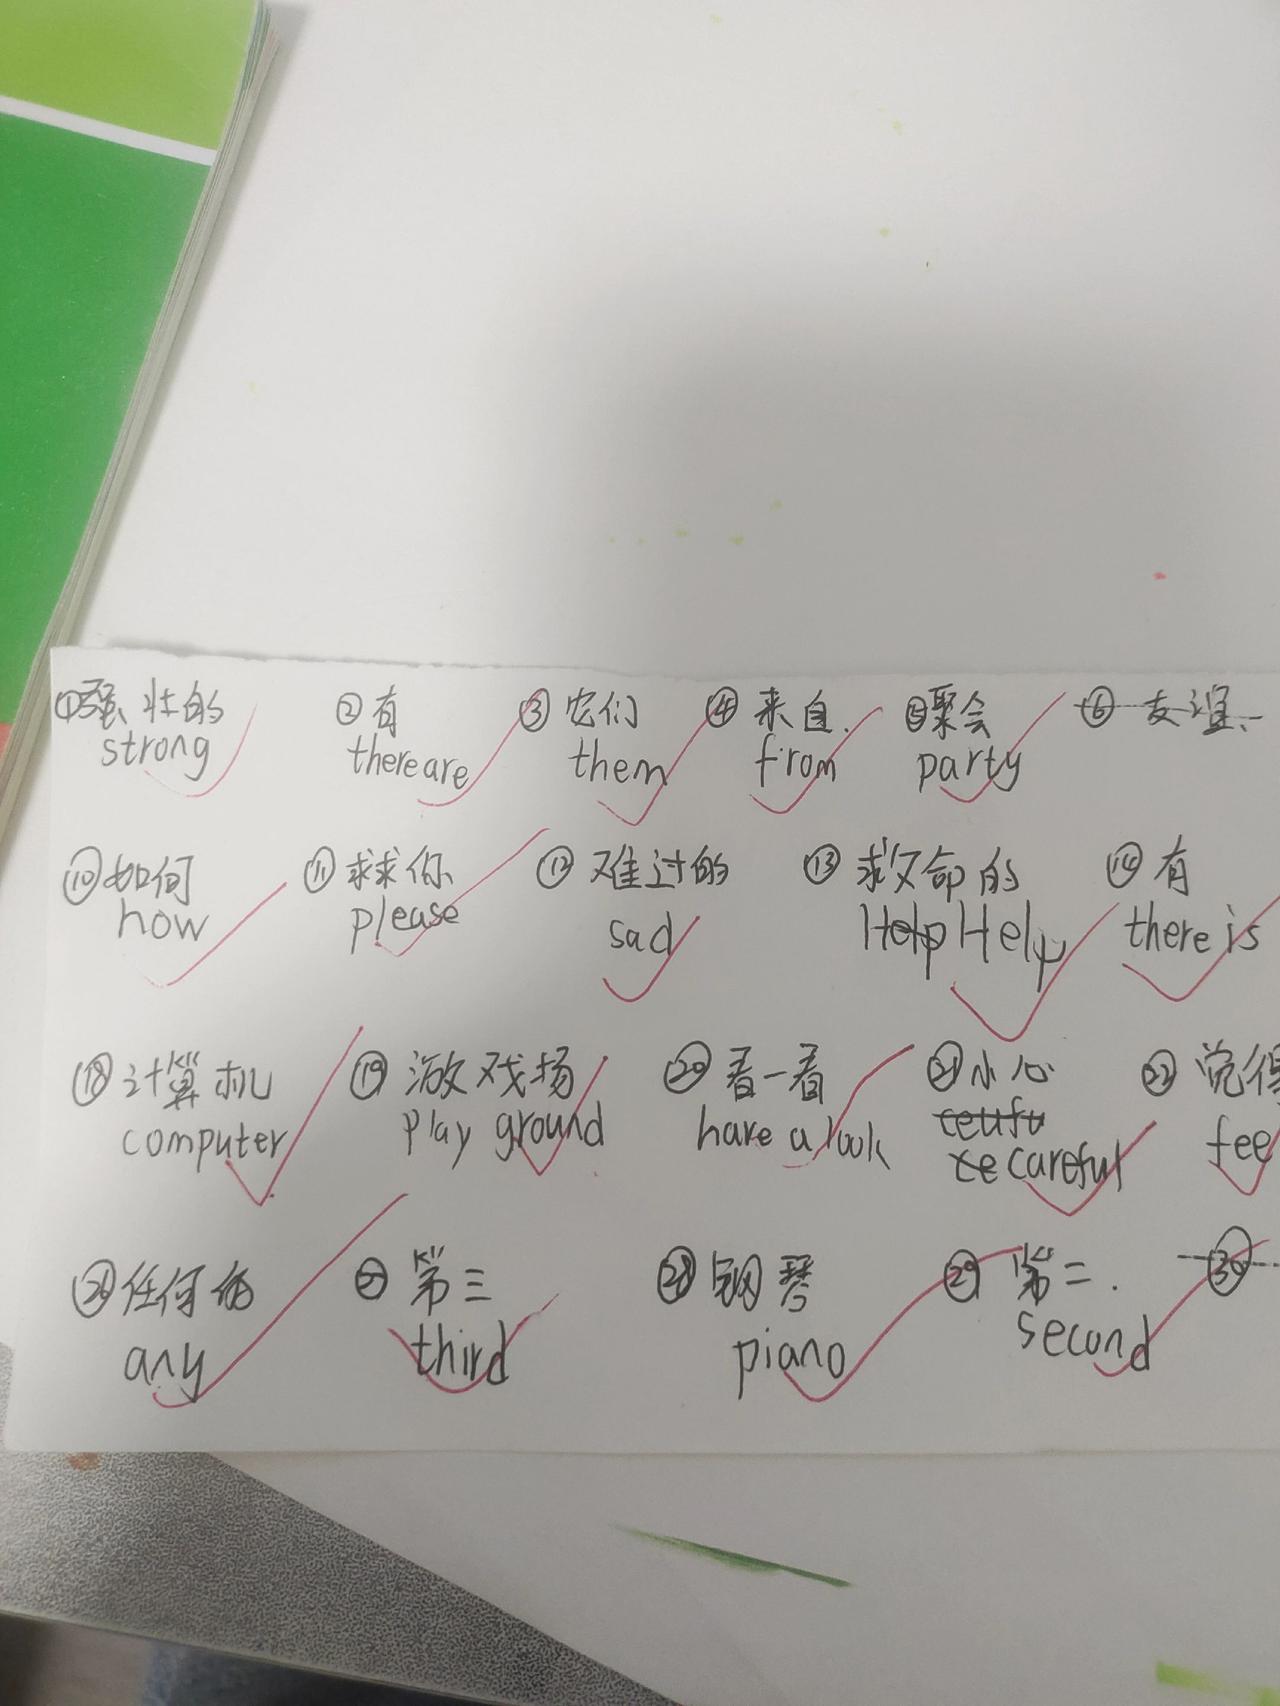 ①强壮的 ②有 ③它们 ④来自. ⑤聚会 ⑥友谊
strong there are them from party
⑩如何 ⑪求求你 ⑫难过的 ⑬救命的 ⑭有
how please sad Help Help there is
⑱计算机 ⑲游戏场 ⑳看一看 ㉑小心 ㉒觉得
computer play ground have a look
careful fee
㉖任何的 ㉗第三 ㉘钢琴 ㉙第二. ㉚
any third piano second